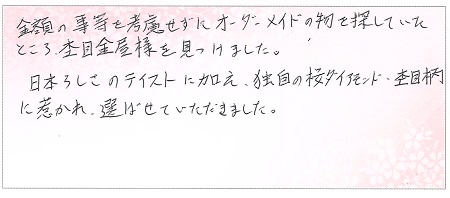 金額の事等を考慮せずにオーダーメイドの物を探していた
ところ、杢目金屋様を見つけました。
日本らしさのテイストに加え、独自の桜ダイヤモンド・杢目柄
に惹かれ、選ばせていただきました。